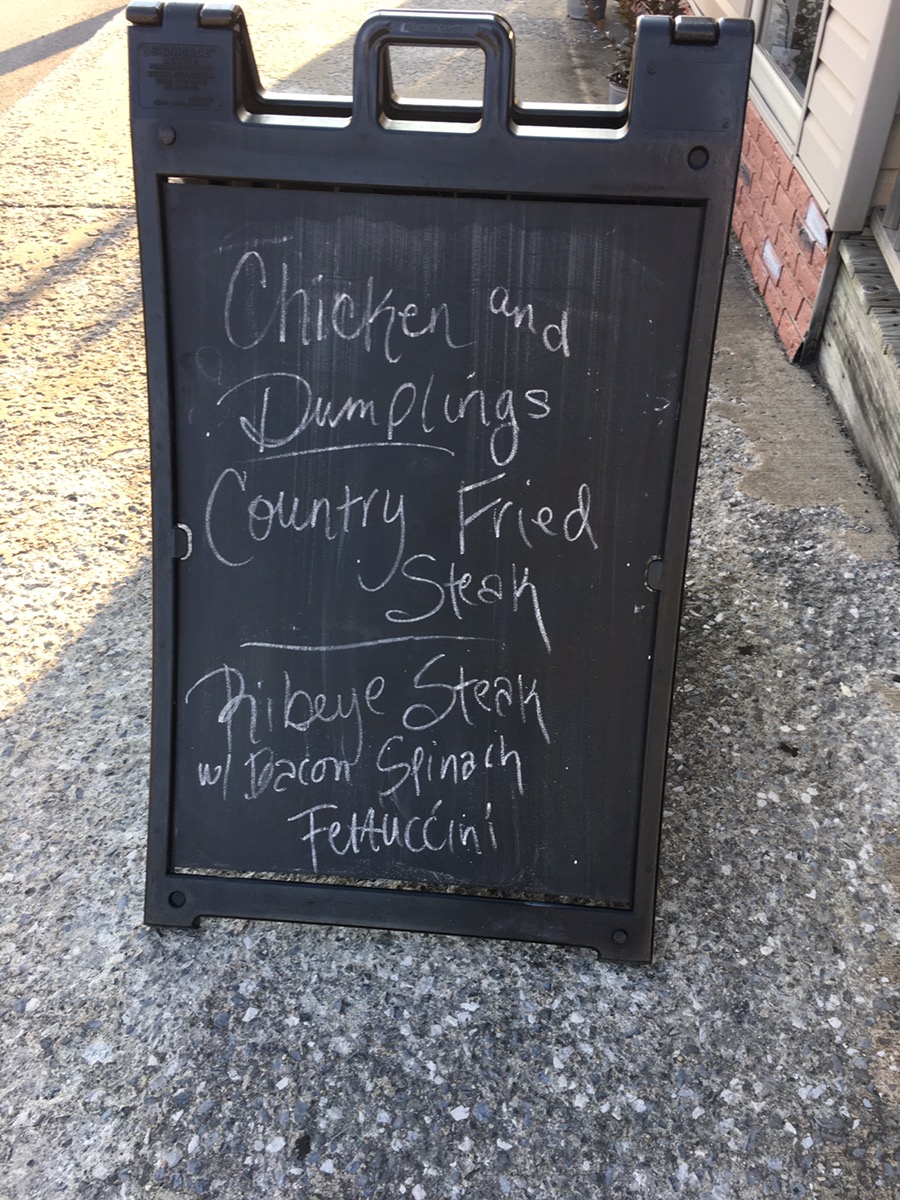 Chicken and
Dumplings
Country Fried
Steak
Ribeye Steak
w/ Bacon Spinach
Fettuccini